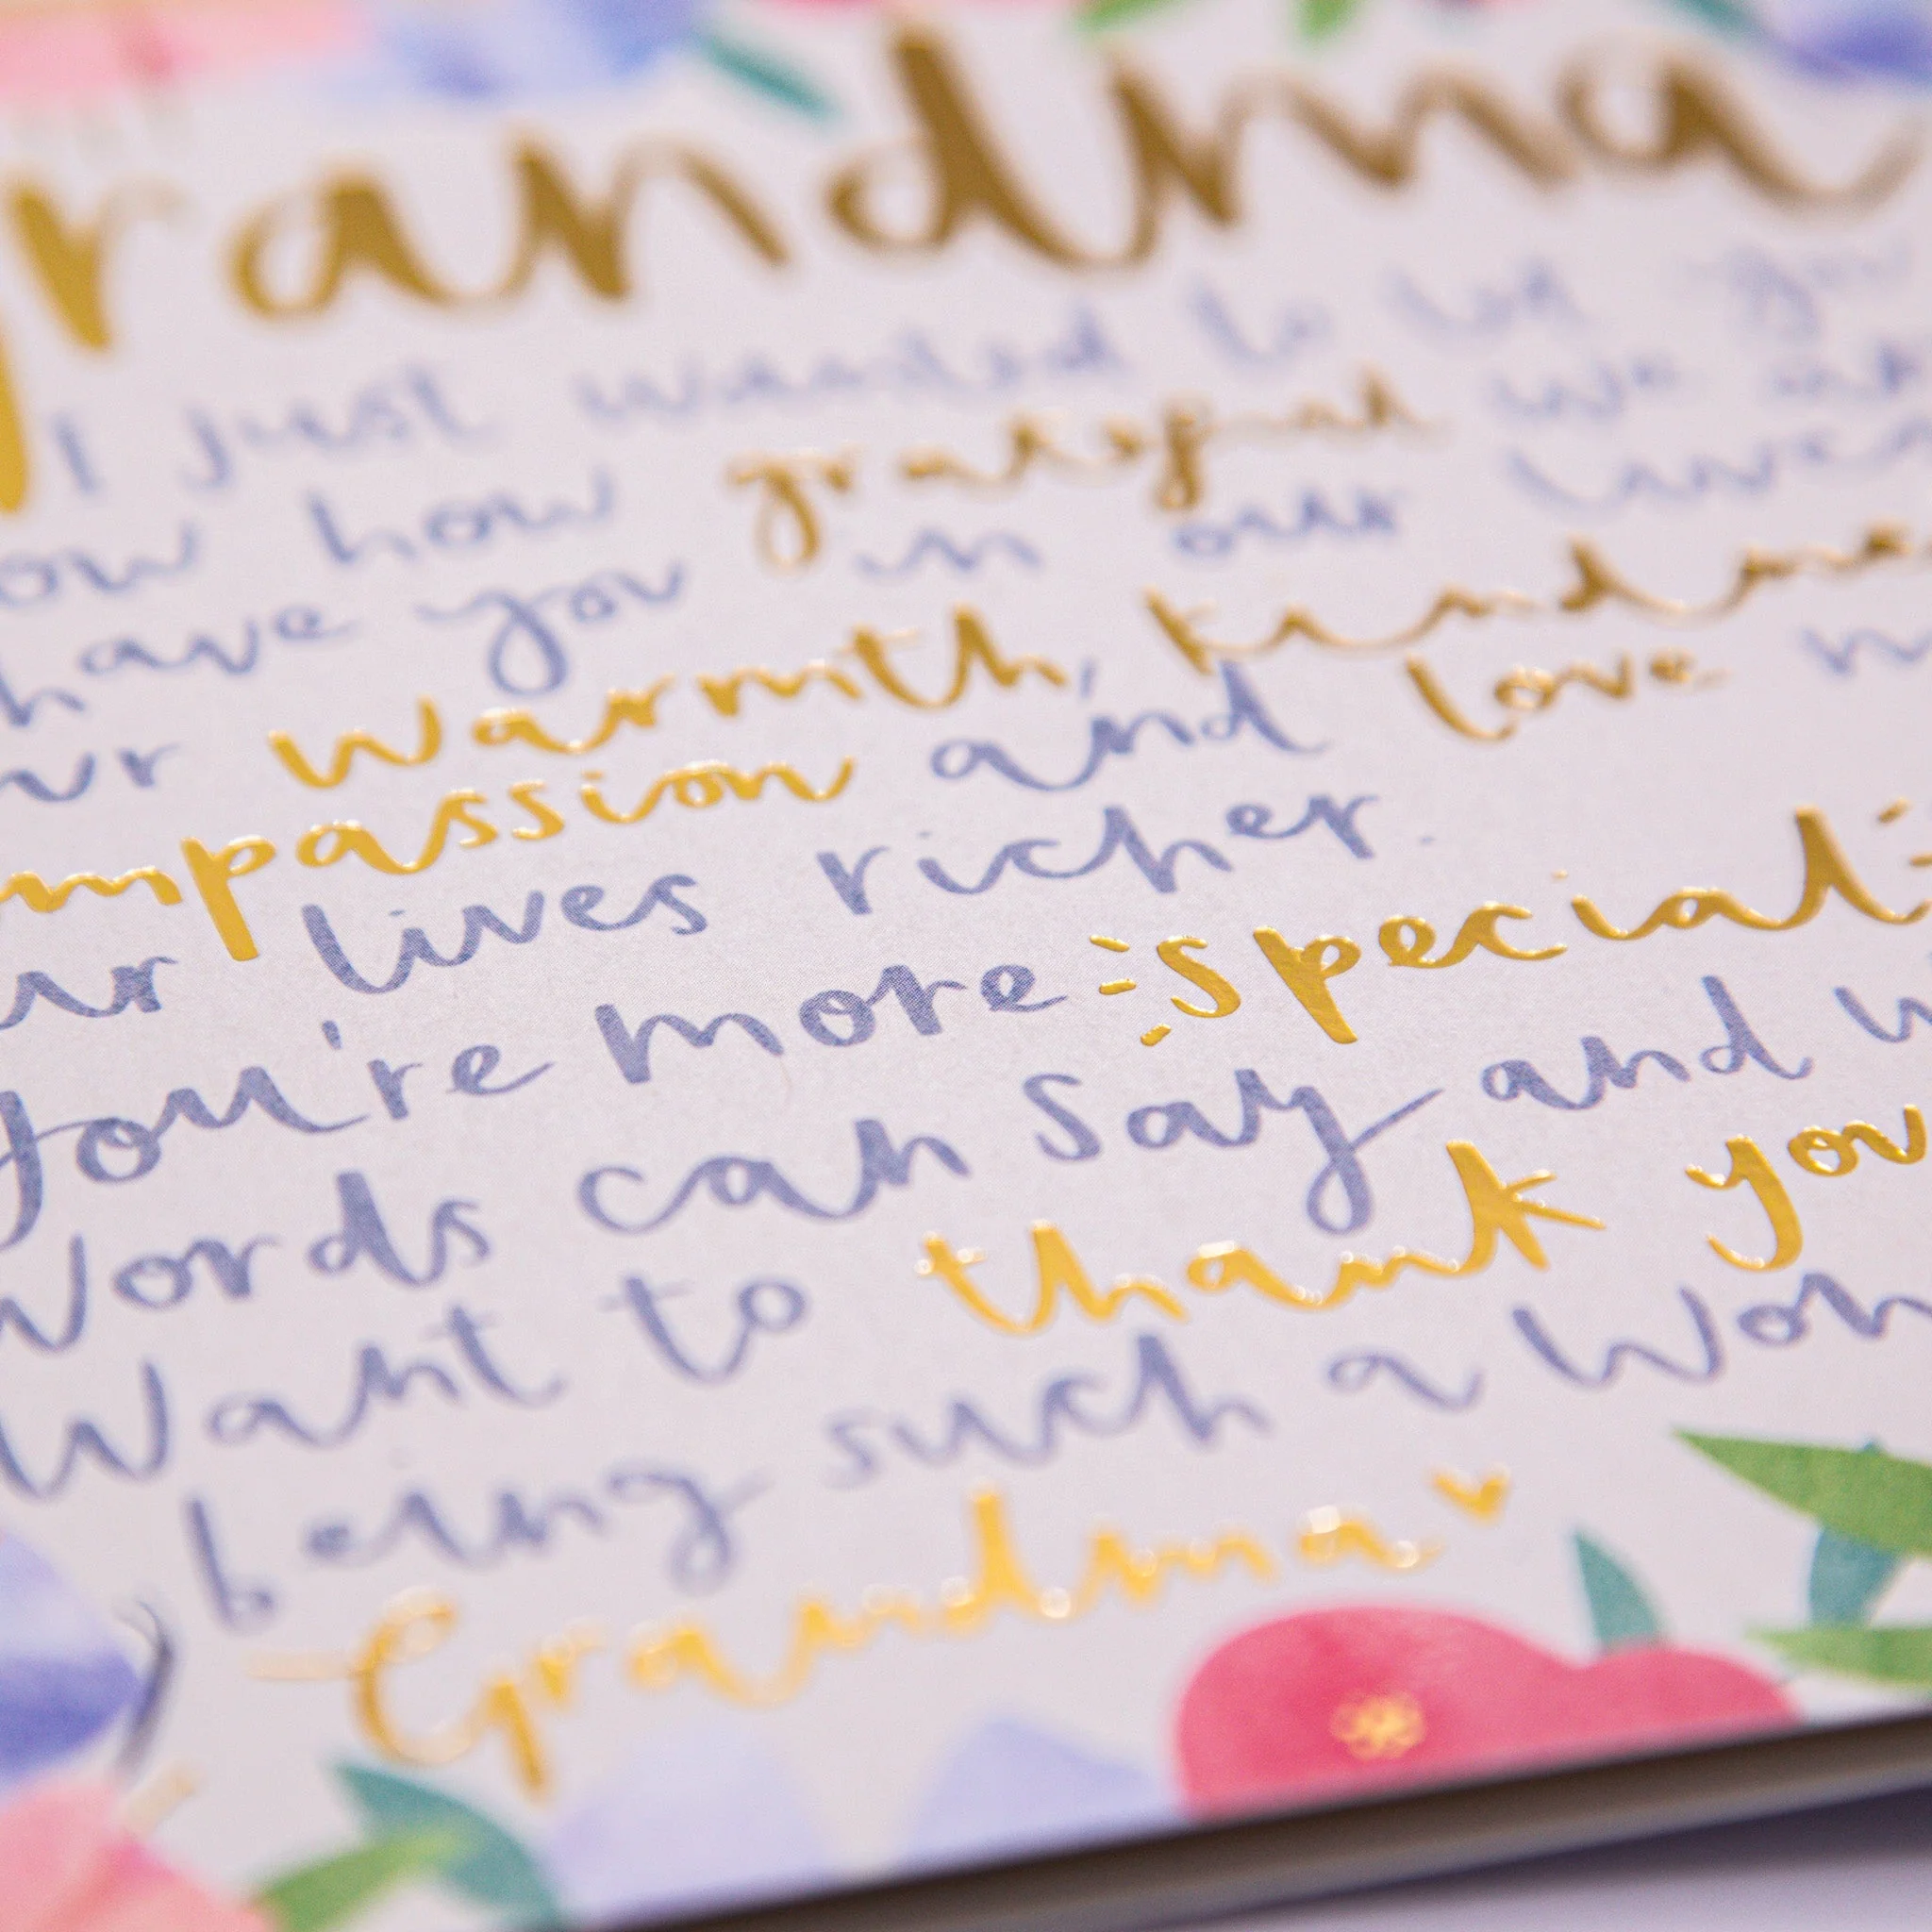 randma
I just wanted to let you
ow how grateful we are
have you in our lives
ur warmth, kindnes
mpassion and love m
ur lives richer.
You're more special
words can say and w
want to thank you
being such a won
Grandma